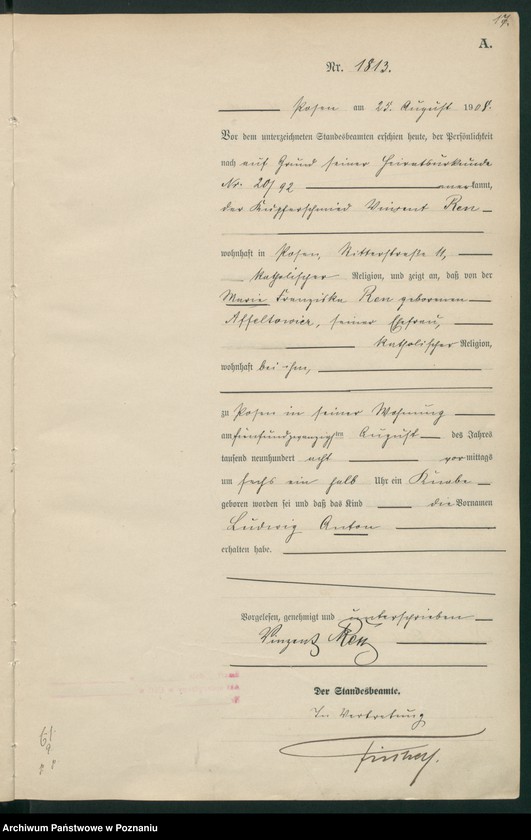 17.
A.
Nr. 1813.
Posen am 25. August 1908.
Vor dem unterzeichneten Standesbeamten erschien heute, der Persönlichkeit
nach auf Grund seiner Heiratsurkunde
Nr. 20/92 anerkannt,
der Kupferschmied Vincent Ren
wohnhaft in Posen, Ritterstraße 11,
katholischer Religion, und zeigt an, daß von der
Marie Franziska Ren geborenen
Affeltowicz, seiner Ehefrau,
katholischer Religion,
wohnhaft bei ihm,
zu Posen in seiner Wohnung
am fünfundzwanzigsten August des Jahres
tausend neunhundert acht vormittags
um sechs ein halb Uhr ein Knabe
geboren worden sei und daß das Kind die Vornamen
Ludwig Anton
erhalten habe.
Vorgelesen, genehmigt und unterschrieben
Vinzent Ren
Der Standesbeamte.
In Vertretung
Archiwum Państwowe w Poznaniu